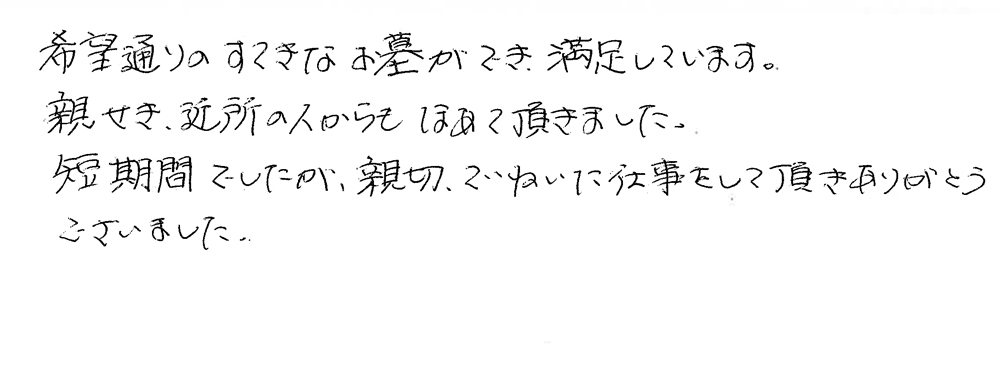 希望通りのすてきなお墓ができ満足しています。
親せき、近所の人からもほめて頂きました。
短期間でしたが、親切、ていねいに仕事をして頂きありがとう
ございました。